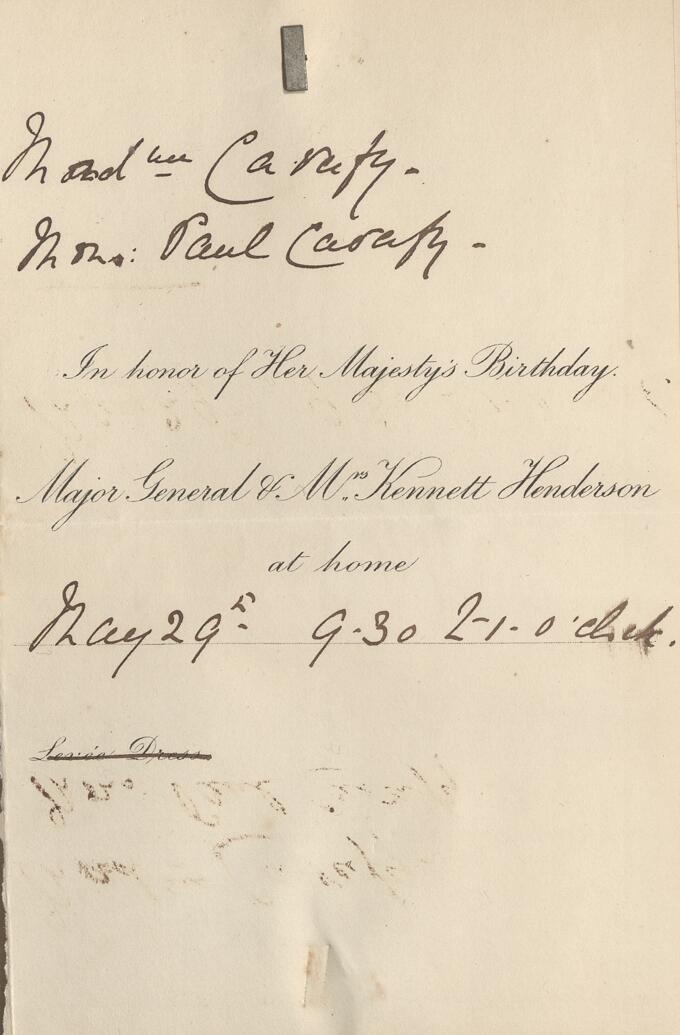 Mad me Cavafy.
Mons: Paul Cavafy -
In honor of Her Majesty's Birthday.
Major General & Mrs. Kennett Henderson
at home
May 29th 9-30 to 1- o'clock.
Levée Dress.